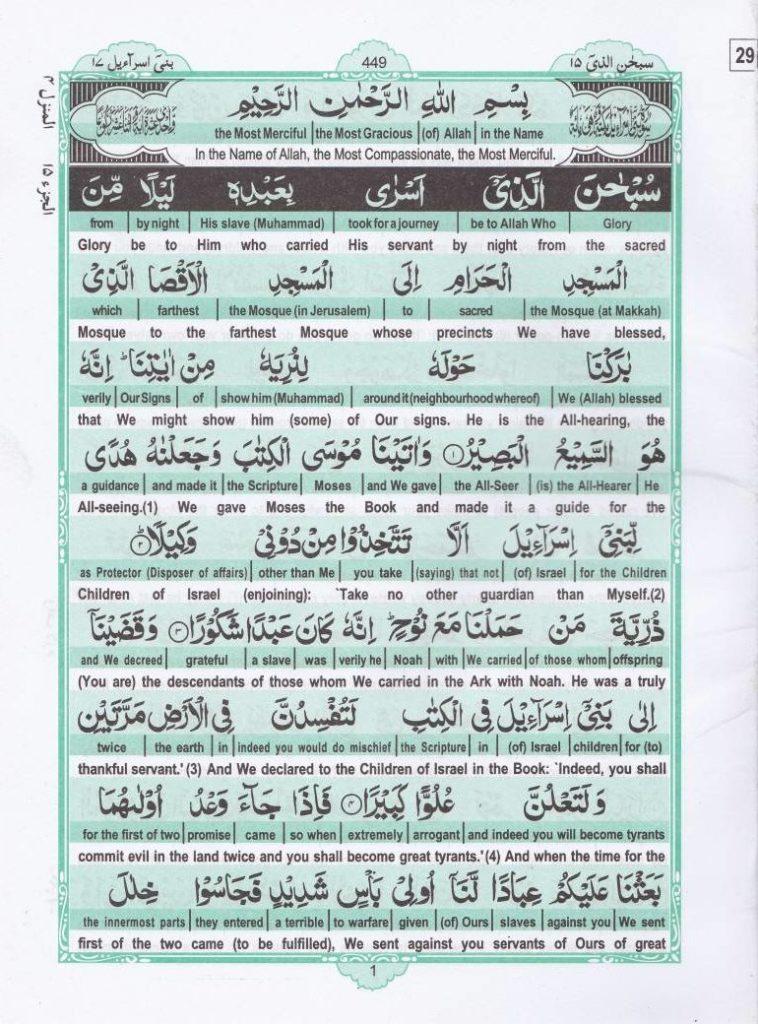 بنی اسرآءیل ١٧ 449 سبحٰن الذیٓ ١٥
29
المنزل ٤
الجزء ١٥
بِسْمِ اللهِ الرَّحْمٰنِ الرَّحِيْمِ
the Most Merciful | the Most Gracious | (of) Allah | in the Name
In the Name of Allah, the Most Compassionate, the Most Merciful.
سُبْحٰنَ الَّذِيْٓ اَسْرٰى بِعَبْدِهٖ لَيْلًا مِّنَ
from | by night | His slave (Muhammad) | took for a journey | be to Allah Who | Glory
Glory be to Him who carried His servant by night from the sacred
الْمَسْجِدِ الْحَرَامِ اِلَى الْمَسْجِدِ الْاَقْصَا الَّذِيْ
which | farthest | the Mosque (in Jerusalem) | to | sacred | the Mosque (at Makkah)
Mosque to the farthest Mosque whose precincts We have blessed,
بٰرَكْنَا حَوْلَهٗ لِنُرِيَهٗ مِنْ اٰيٰتِنَا ؕ اِنَّهٗ
verily | Our Signs | of | show him (Muhammad) | around it (neighbourhood whereof) | We (Allah) blessed
that We might show him (some) of Our signs. He is the All-hearing, the
هُوَ السَّمِيْعُ الْبَصِيْرُ ١ وَاٰتَيْنَا مُوْسَى الْكِتٰبَ وَجَعَلْنٰهُ هُدًى
a guidance | and made it | the Scripture | Moses | and We gave | the All-Seer | (is) the All-Hearer | He
All-seeing.(1) We gave Moses the Book and made it a guide for the
لِّبَنِيْٓ اِسْرَآءِيْلَ اَلَّا تَتَّخِذُوْا مِنْ دُوْنِيْ وَكِيْلًا ٢
as Protector (Disposer of affairs) | other than Me | you take | (saying) that not | (of) Israel | for the Children
Children of Israel (enjoining): `Take no other guardian than Myself.(2)
ذُرِّيَّةَ مَنْ حَمَلْنَا مَعَ نُوْحٍ ؕ اِنَّهٗ كَانَ عَبْدًا شَكُوْرًا ٣ وَقَضَيْنَآ
and We decreed | grateful | a slave | was | verily he | Noah | with | We carried | of those whom | offspring
(You are) the descendants of those whom We carried in the Ark with Noah. He was a truly
اِلٰى بَنِيْٓ اِسْرَآءِيْلَ فِي الْكِتٰبِ لَتُفْسِدُنَّ فِي الْاَرْضِ مَرَّتَيْنِ
twice | the earth | in | indeed you would do mischief | the Scripture | in | (of) Israel | children | for (to)
thankful servant.' (3) And We declared to the Children of Israel in the Book: `Indeed, you shall
وَلَتَعْلُنَّ عُلُوًّا كَبِيْرًا ٤ فَاِذَا جَآءَ وَعْدُ اُوْلٰىهُمَا
for the first of two | promise | came | so when | extremely | arrogant | and indeed you will become tyrants
commit evil in the land twice and you shall become great tyrants.'(4) And when the time for the
بَعَثْنَا عَلَيْكُمْ عِبَادًا لَّنَآ اُولِيْ بَاْسٍ شَدِيْدٍ فَجَاسُوْا خِلٰلَ
the innermost parts | they entered | a terrible | to warfare | given | (of) Ours | slaves | against you | We sent
first of the two came (to be fulfilled), We sent against you servants of Ours of great
1